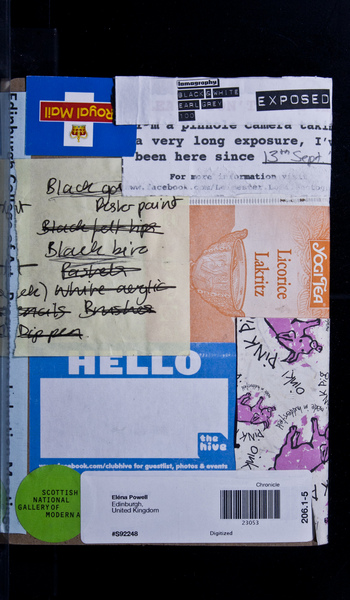 Royal Mail
lomography
BLACK & WHITE
EARL GREY
100
EXPOSED
I'm a pinhole camera takin
a very long exposure, I'v
been here since 13th Sept
For more information visit
www.facebook.com/
Black
Poster paint
Black felt tips
Black biro
Pastels
White acrylic
Brushes
Dip pen
YOGI TEA
Licorice
Lakritz
HELLO
the
hive
facebook.com/clubhive for guestlist, photos & events
PINK
OINK!
PINK
OINK!
SCOTTISH
NATIONAL
GALLERY OF
MODERN A
Chronicle
Eléna Powell
Edinburgh,
United Kingdom
23053
#S92248
Digitized
206.1-5